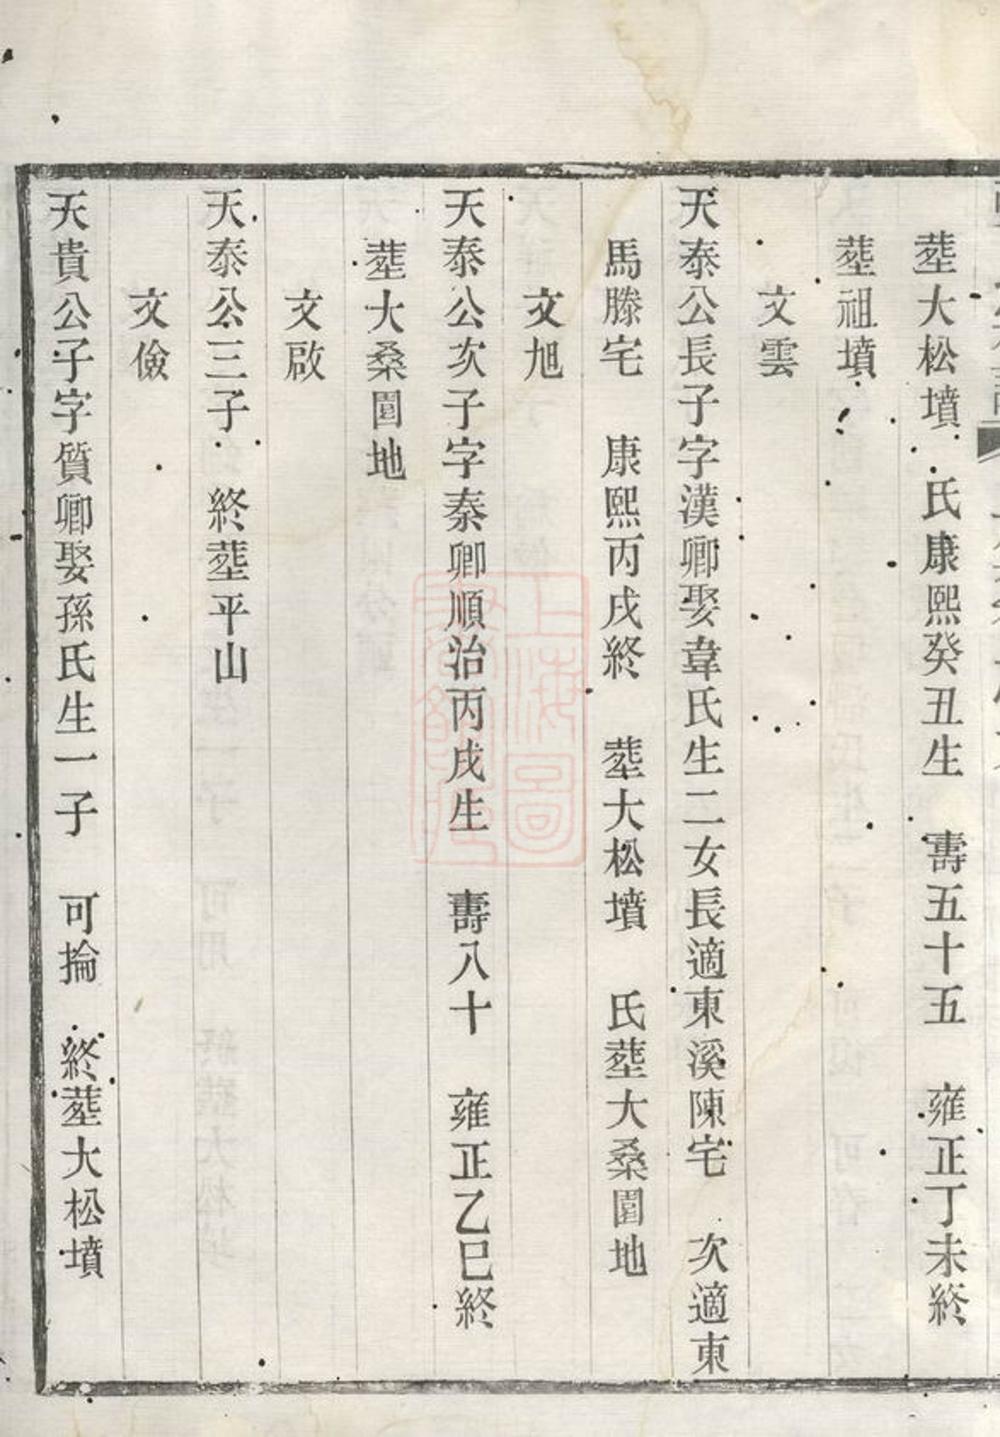 塟大松墳　氏康熙癸丑生　壽五十五　雍正丁未終
塟祖墳
文雲
天泰公長子字漢卿娶韋氏生二女長適東溪陳宅　次適東
馬滕宅　康熙丙戌終　塟大松墳　氏塟大桑園地
文旭
天泰公次子字泰卿順治丙戌生　壽八十　雍正乙巳終
塟大桑園地
文啟
天泰公三子　終塟平山
文儉
天貴公子字質卿娶孫氏生一子　可掄　終塟大松墳
上海圖